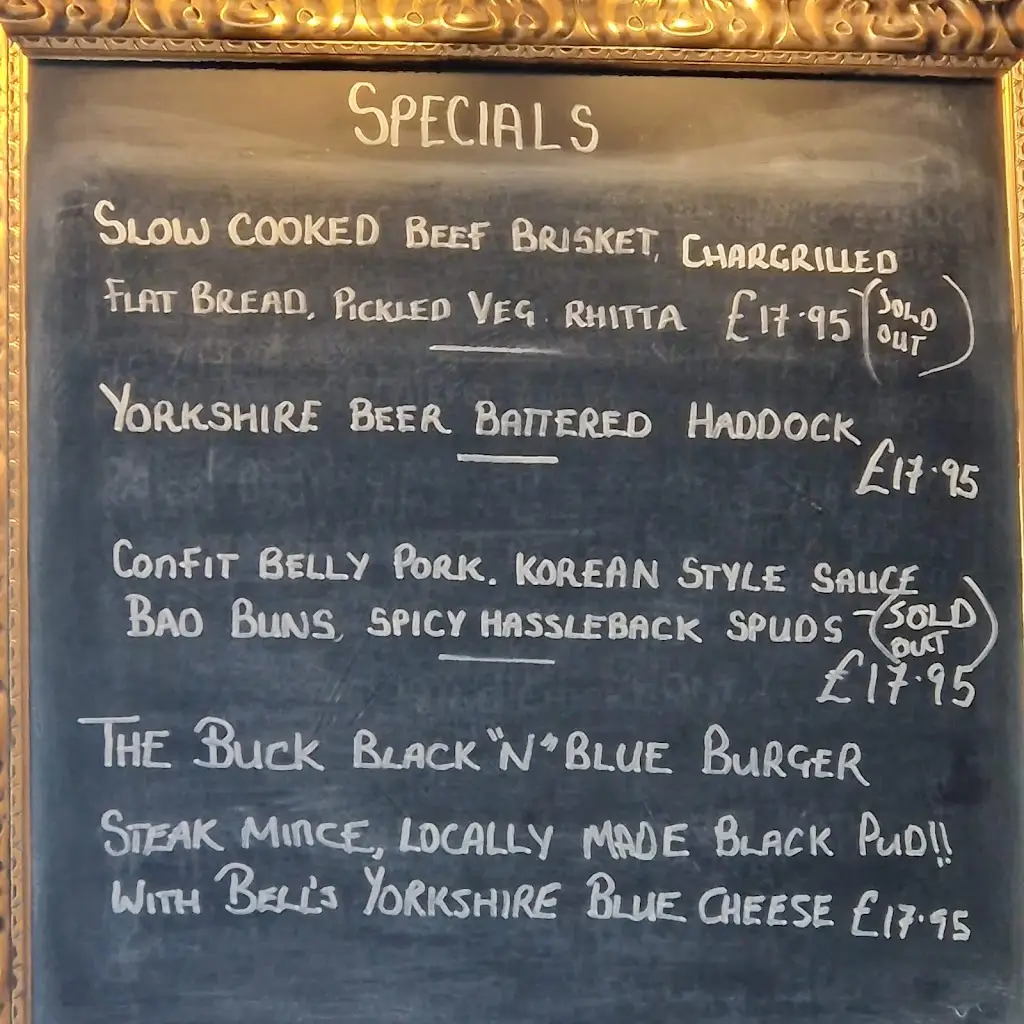 SPECIALS
SLOW COOKED BEEF BRISKET, CHARGRILLED
FLAT BREAD, PICKLED VEG. RHITTA £17.95 (SOLD OUT)
YORKSHIRE BEER BATTERED HADDOCK
£17.95
CONFIT BELLY PORK. KOREAN STYLE SAUCE
BAO BUNS, SPICY HASSLEBACK SPUDS (SOLD OUT)
£17.95
THE BUCK BLACK "N" BLUE BURGER
STEAK MINCE, LOCALLY MADE BLACK PUD!!
WITH BELL'S YORKSHIRE BLUE CHEESE £17.95